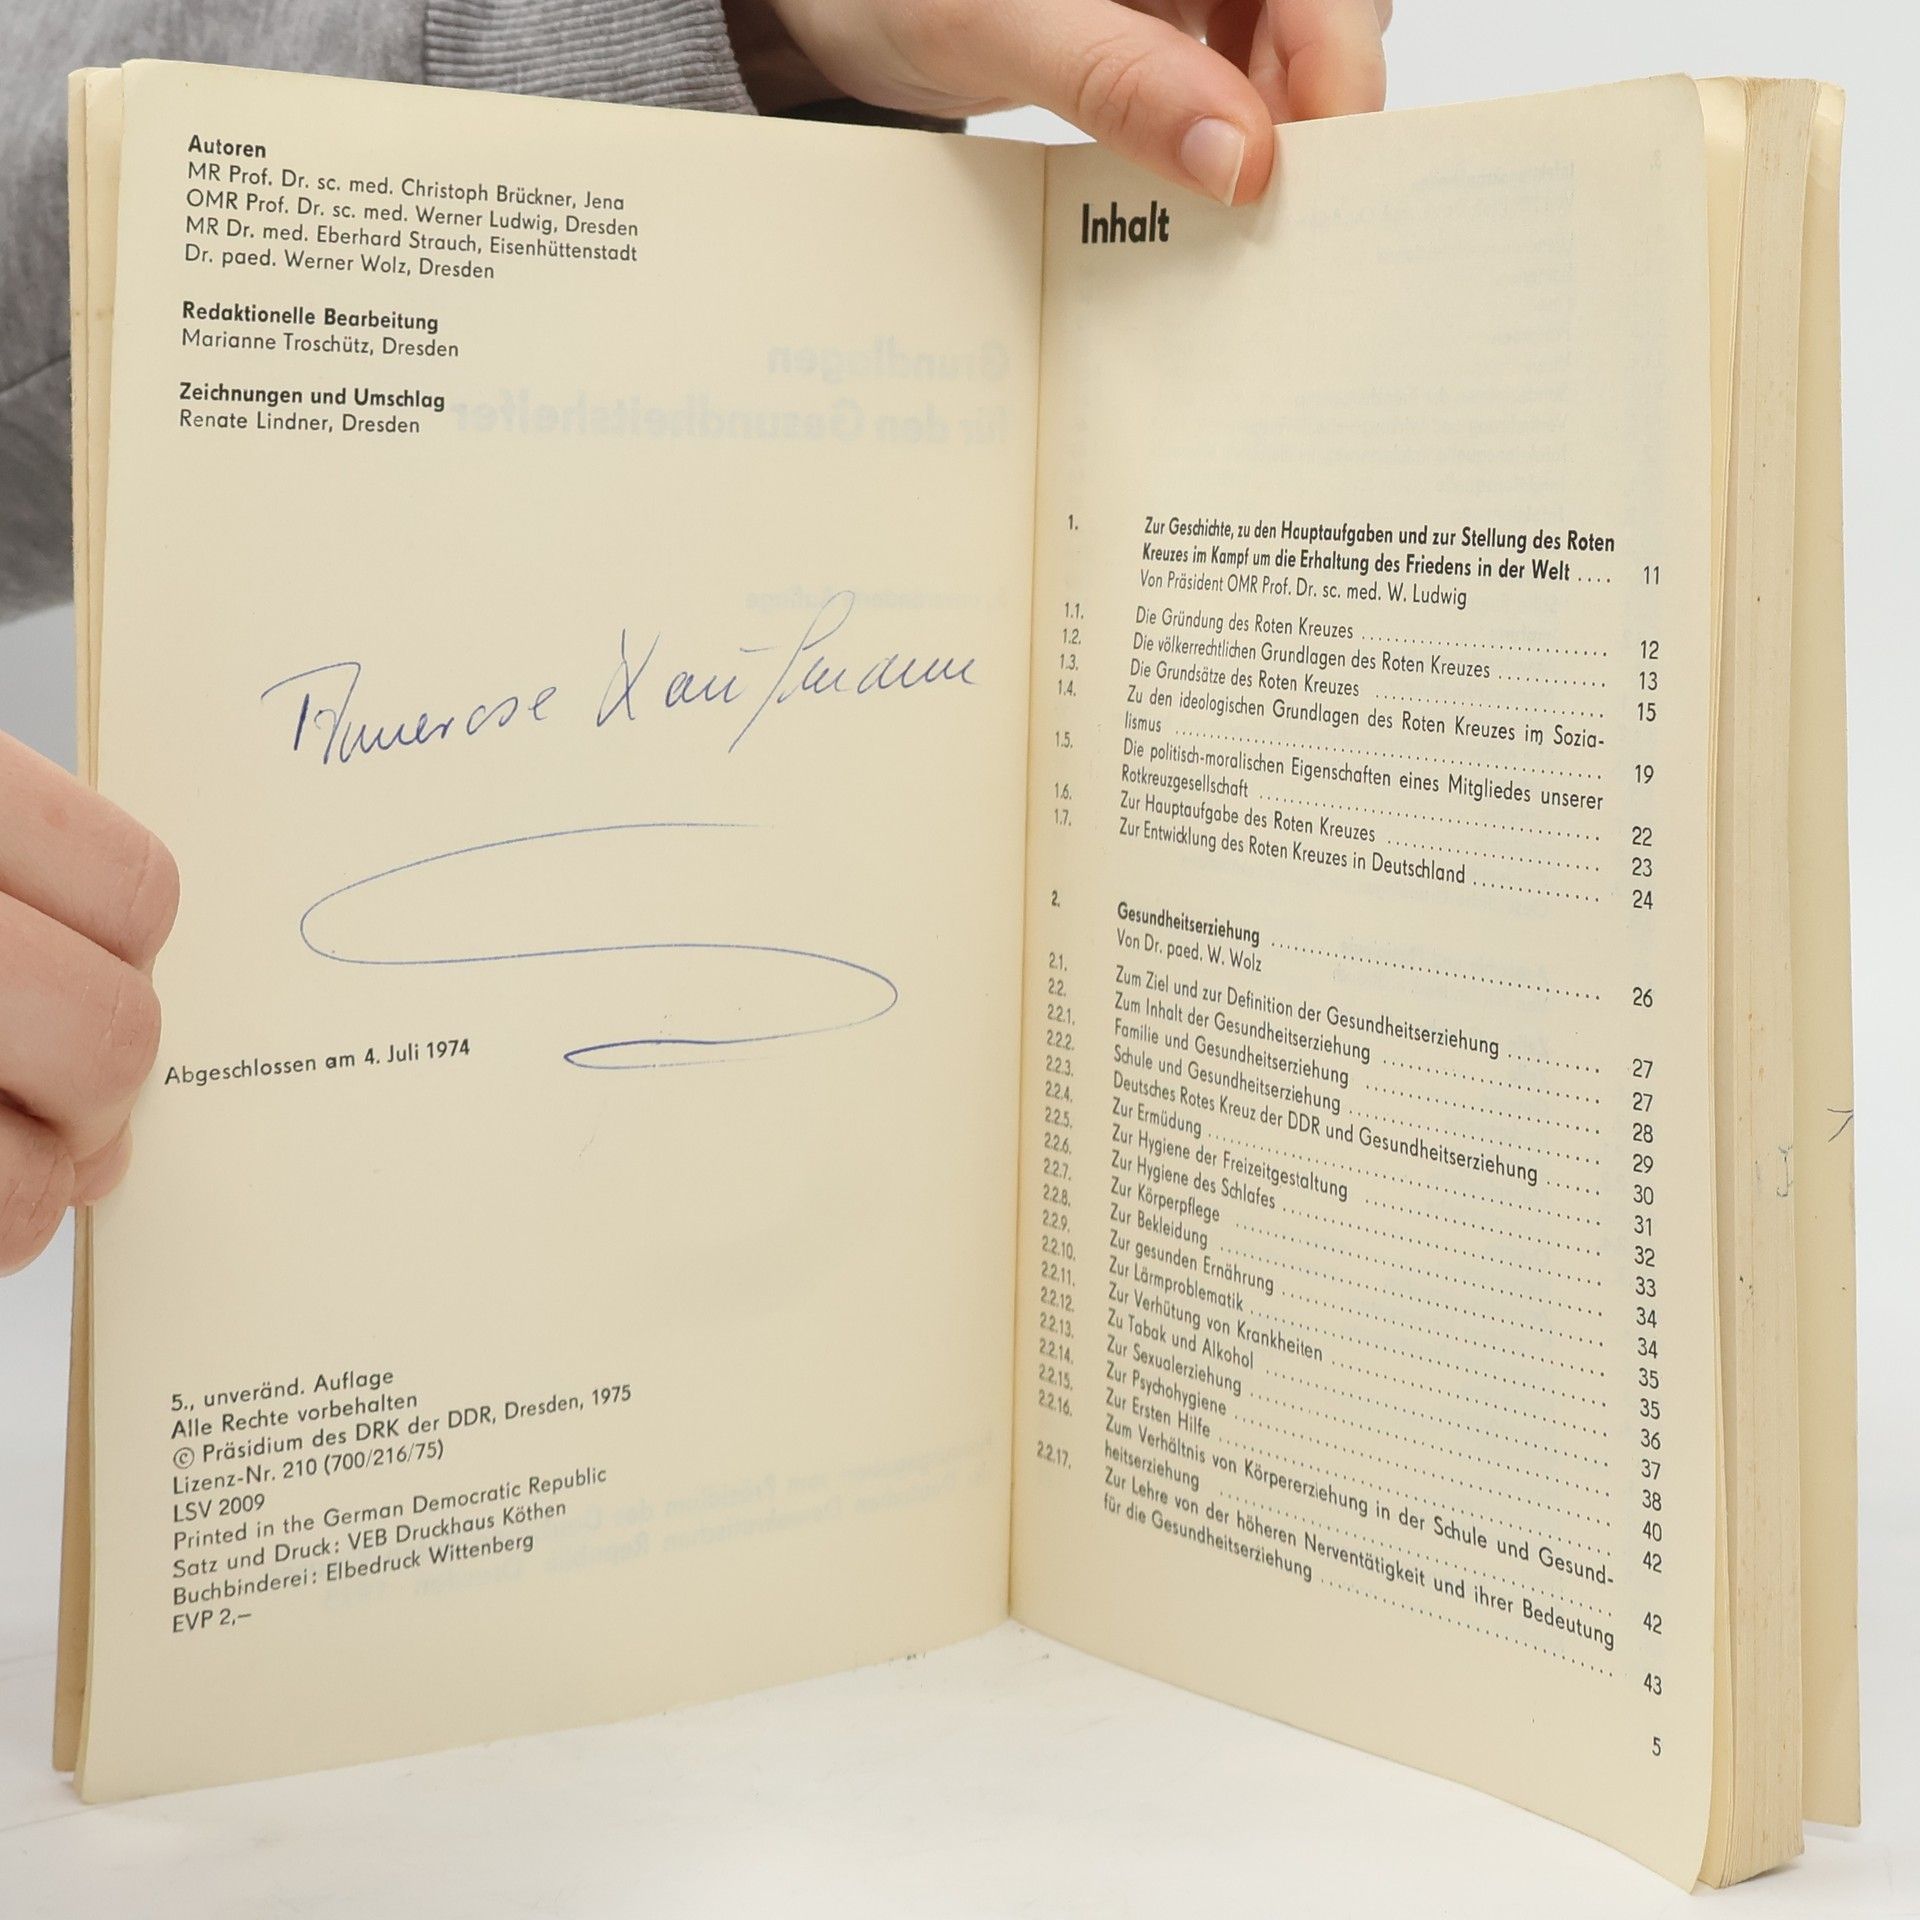 Autoren
MR Prof. Dr. sc. med. Christoph Brückner, Jena
OMR Prof. Dr. sc. med. Werner Ludwig, Dresden
MR Dr. med. Eberhard Strauch, Eisenhüttenstadt
Dr. paed. Werner Wolz, Dresden
Redaktionelle Bearbeitung
Marianne Troschütz, Dresden
Zeichnungen und Umschlag
Renate Lindner, Dresden
Annerose Kaufmann
Abgeschlossen am 4. Juli 1974
5., unveränd. Auflage
Alle Rechte vorbehalten
© Präsidium des DRK der DDR, Dresden, 1975
Lizenz-Nr. 210 (700/216/75)
LSV 2009
Printed in the German Democratic Republic
Satz und Druck: VEB Druckhaus Köthen
Buchbinderei: Elbedruck Wittenberg
EVP 2,—
Inhalt
1. Zur Geschichte, zu den Hauptaufgaben und zur Stellung des Roten
Kreuzes im Kampf um die Erhaltung des Friedens in der Welt .... 11
Von Präsident OMR Prof. Dr. sc. med. W. Ludwig
1.1. Die Gründung des Roten Kreuzes .......... 12
1.2. Die völkerrechtlichen Grundlagen des Roten Kreuzes .......... 13
1.3. Die Grundsätze des Roten Kreuzes .......... 15
1.4. Zu den ideologischen Grundlagen des Roten Kreuzes im Sozia-
lismus .......... 19
1.5. Die politisch-moralischen Eigenschaften eines Mitgliedes unserer
Rotkreuzgesellschaft .......... 22
1.6. Zur Hauptaufgabe des Roten Kreuzes .......... 23
1.7. Zur Entwicklung des Roten Kreuzes in Deutschland .......... 24
2. Gesundheitserziehung .......... 26
Von Dr. paed. W. Wolz
2.1. Zum Ziel und zur Definition der Gesundheitserziehung .......... 27
2.2. Zum Inhalt der Gesundheitserziehung .......... 27
2.2.1. Familie und Gesundheitserziehung .......... 28
2.2.2. Schule und Gesundheitserziehung .......... 29
2.2.3. Deutsches Rotes Kreuz der DDR und Gesundheitserziehung ...... 30
2.2.4. Zur Ermüdung .......... 31
2.2.5. Zur Hygiene der Freizeitgestaltung .......... 32
2.2.6. Zur Hygiene des Schlafes .......... 33
2.2.7. Zur Körperpflege .......... 34
2.2.8. Zur Bekleidung .......... 34
2.2.9. Zur gesunden Ernährung .......... 35
2.2.10. Zur Lärmproblematik .......... 35
2.2.11. Zur Verhütung von Krankheiten .......... 36
2.2.12. Zu Tabak und Alkohol .......... 37
2.2.13. Zur Sexualerziehung .......... 38
2.2.14. Zur Psychohygiene .......... 40
2.2.15. Zur Ersten Hilfe .......... 42
2.2.16. Zum Verhältnis von Körpererziehung in der Schule und Gesund-
heitserziehung .......... 42
2.2.17. Zur Lehre von der höheren Nerventätigkeit und ihrer Bedeutung
für die Gesundheitserziehung .......... 43
5